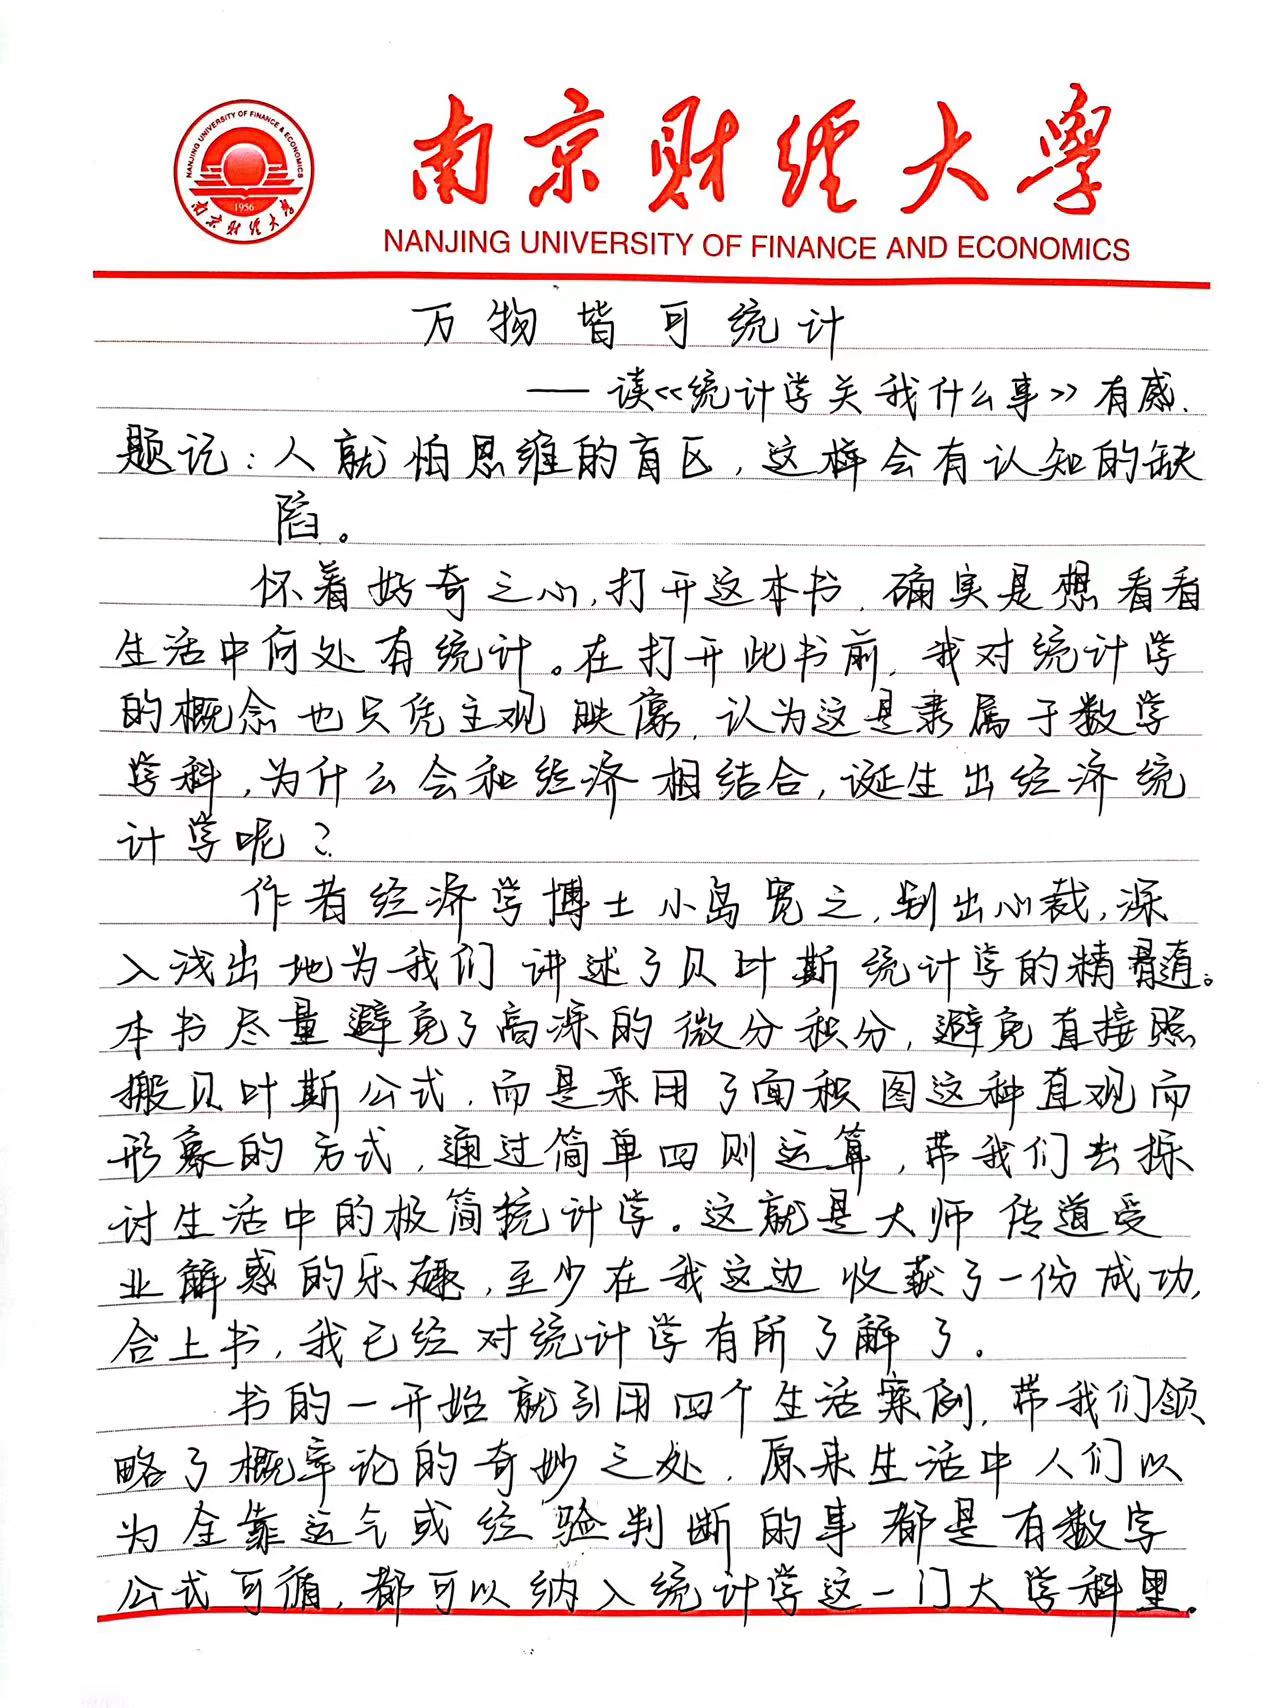 NANJING UNIVERSITY OF FINANCE & ECONOMICS
1956
南京财经大学
南京财经大學
NANJING UNIVERSITY OF FINANCE AND ECONOMICS
万物皆可统计
——读《统计学关我什么事》有感.
题记：人就怕思维的盲区，这样会有认知的缺
陷。
怀着好奇之心，打开这本书，确实是想看看
生活中何处有统计。在打开此书前，我对统计学
的概念也只凭主观映像，认为这是隶属于数学
学科，为什么会和经济相结合，诞生出经济统
计学呢？
作者经济学博士小岛宽之，别出心裁，深
入浅出地为我们讲述了贝叶斯统计学的精髓。
本书尽量避免了高深的微分积分，避免直接照
搬贝叶斯公式，而是采用了面积图这种直观而
形象的方式，通过简单四则运算，带我们去探
讨生活中的极简统计学。这就是大师传道受
业解惑的乐趣，至少在我这边收获了一份成功，
合上书，我已经对统计学有所了解了。
书的一开始就引用四个生活案例，带我们领
略了概率论的奇妙之处，原来生活中人们以
为全靠运气或经验判断的事都是有数字
公式可循，都可以纳入统计学这一门大学科里。